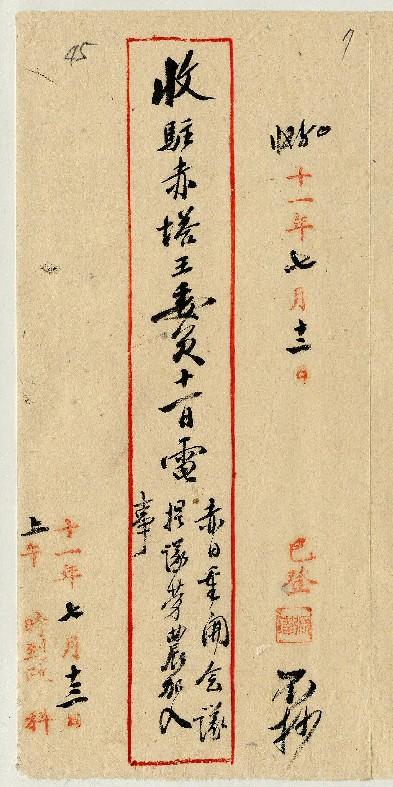 7
十一年七月十二日
已登
不抄
收駐赤塔王委員十一日電
赤日重開会議
提議勞農加入
事
十一年七月十三日
上午 時到 科
45